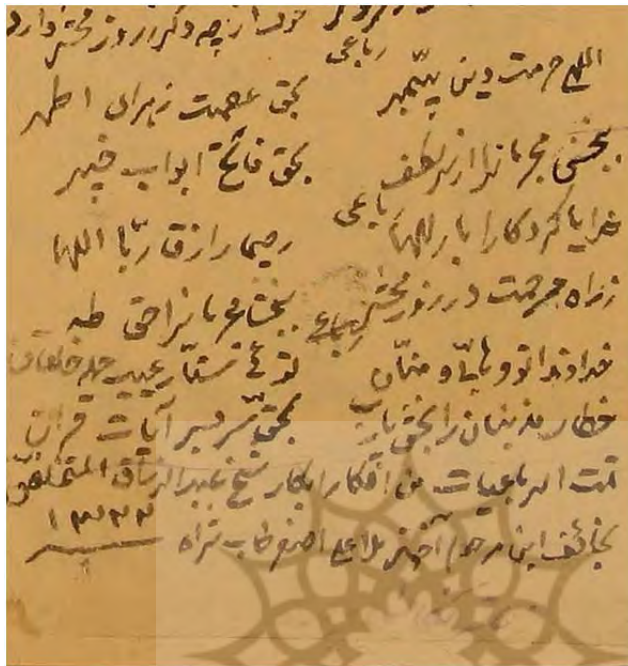 خود از چه و کردار روز محشر دارد
رباعی
الهی حرمت دین پیمبر بحق عصمت زهرای اطهر
ببخشی مجرمانرا از ره لطف بحق فاتح ابواب خیبر
رباعی
خدایا کردکارا بار الها رحیما رازقا ربّا اللها
ز راه مرحمت در روز محشر ببخشا مجرمانرا حق طه
رباعی
خداوندا تو وهابی و منّان توئی ستّار عیب جمله خلقان
خطای مذنبان را بحق سرّ سر آیات قرآن
تمت الرباعیات من افکار ابکار شیخ عبدالرزاق المتخلص
بخائف ابن مرحوم آخوند ملا علی اصغر طاب ثراه ۱۳۳۲